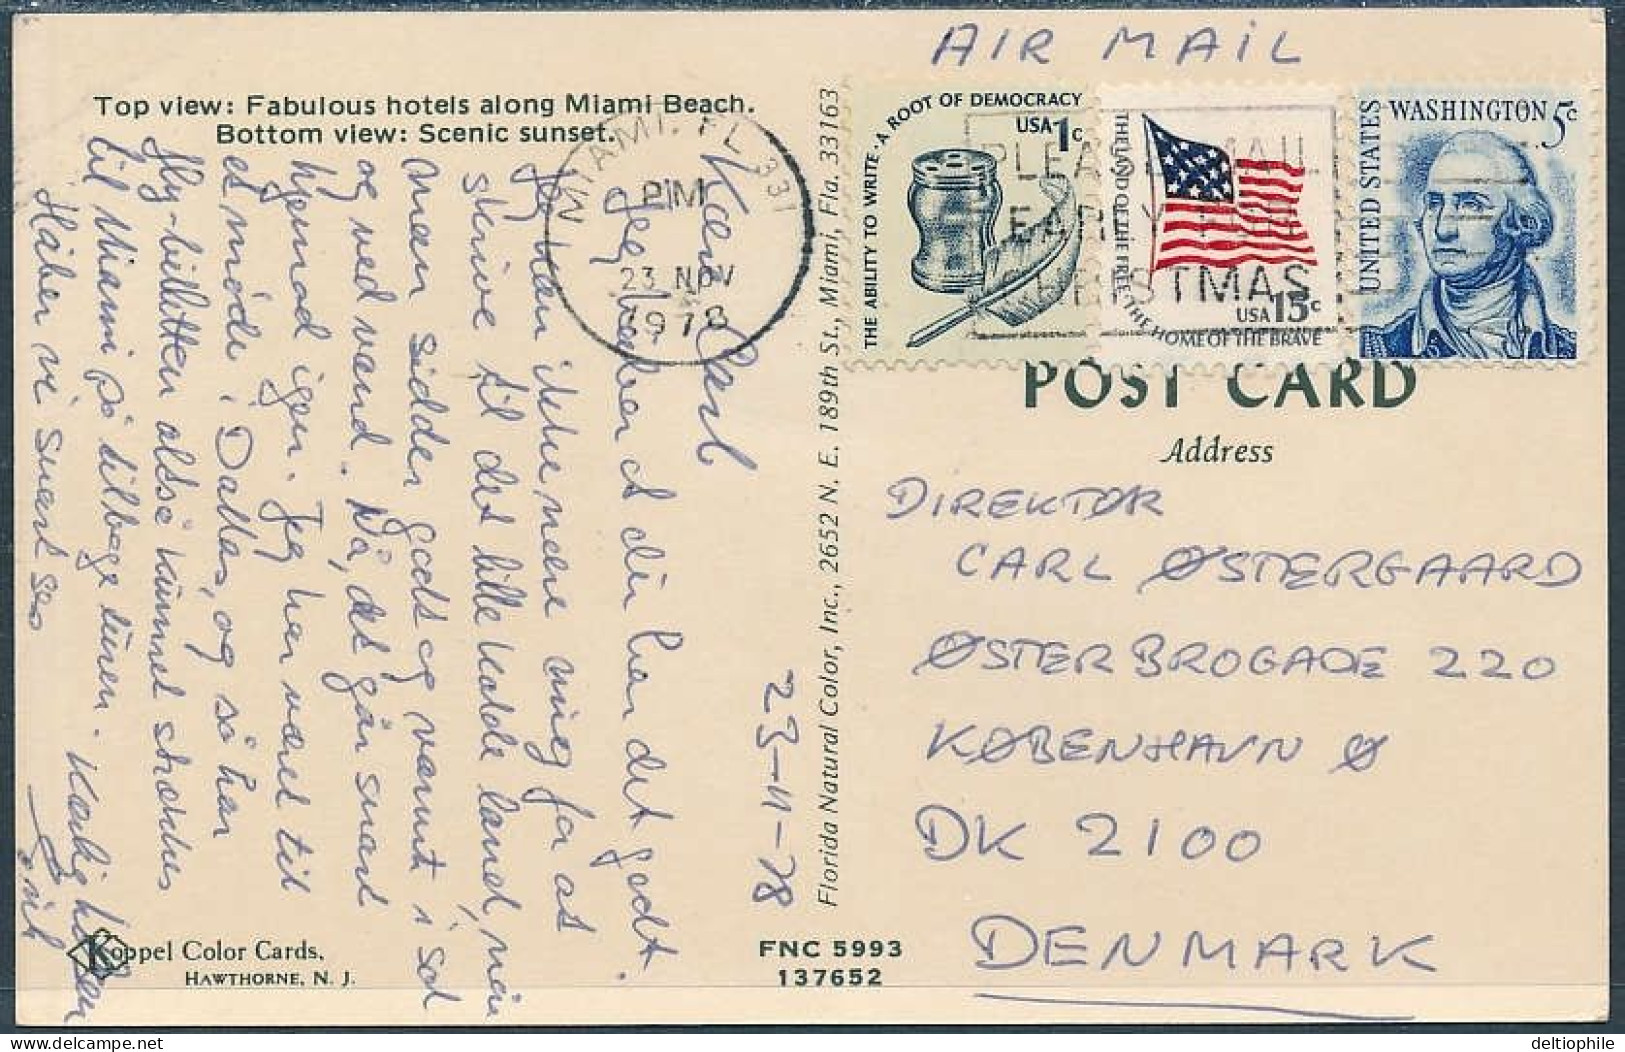 AIR MAIL
Top view: Fabulous hotels along Miami Beach.
Bottom view: Scenic sunset.
MIAMI, FL 331
PM
23 NOV
1978
THE ABILITY TO WRITE · A ROOT OF DEMOCRACY
USA 1c
THE LAND OF THE FREE, THE HOME OF THE BRAVE
USA 15c
UNITED STATES
WASHINGTON 5c
PLEASE MAIL
EARLY FOR
CHRISTMAS
POST CARD
Address
DIREKTØR
CARL ØSTERGAARD
ØSTERBROGADE 220
KØBENHAVN Ø
DK 2100
DENMARK
23-11-78
Kære Carl
Jeg håber at du har det godt.
Jeg kan ikke nære mig for at
skrive til det lille kolde land, nej
man sidder godt og varmt i sol
og ved vand. Nå, det går snart
hjemad igen. Jeg har været til
et møde i Dallas, og så har
fly-billetten altså kunnet strækkes
til Miami på tilbage turen. Kærlig hilsen
Håber vi snart ses
Florida Natural Color, Inc., 2652 N. E. 189th St., Miami, Fla. 33163
Koppel Color Cards,
HAWTHORNE, N. J.
FNC 5993
137652
deltiophile